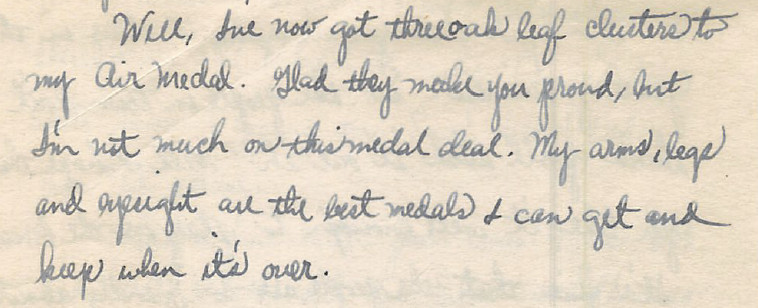 Well, I've now got three oak leaf clusters to
my Air Medal. Glad they make you proud, but
I'm not much on this medal deal. My arms, legs
and eyesight are the best medals I can get and
keep when it's over.